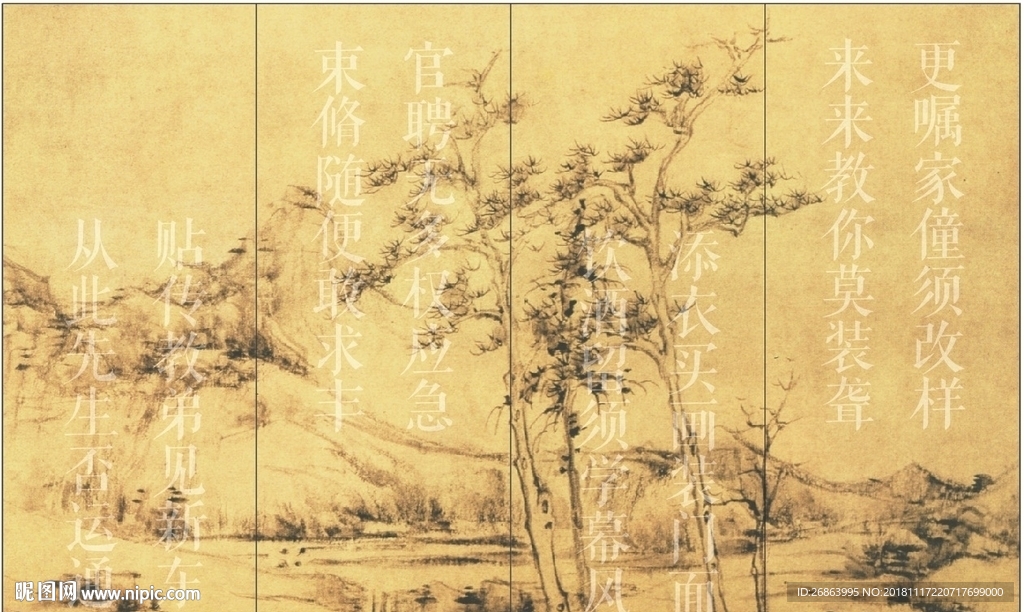 更嘱家僮须改样
来来教你莫装聋
添衣买画装门面
饮酒留须学幕风
官聘无多权应急
束脩随便敢求丰
贴传教弟见新东
从此先生否运通
昵图网 www.nipic.com
ID:26863995 NO:20181117220717699000